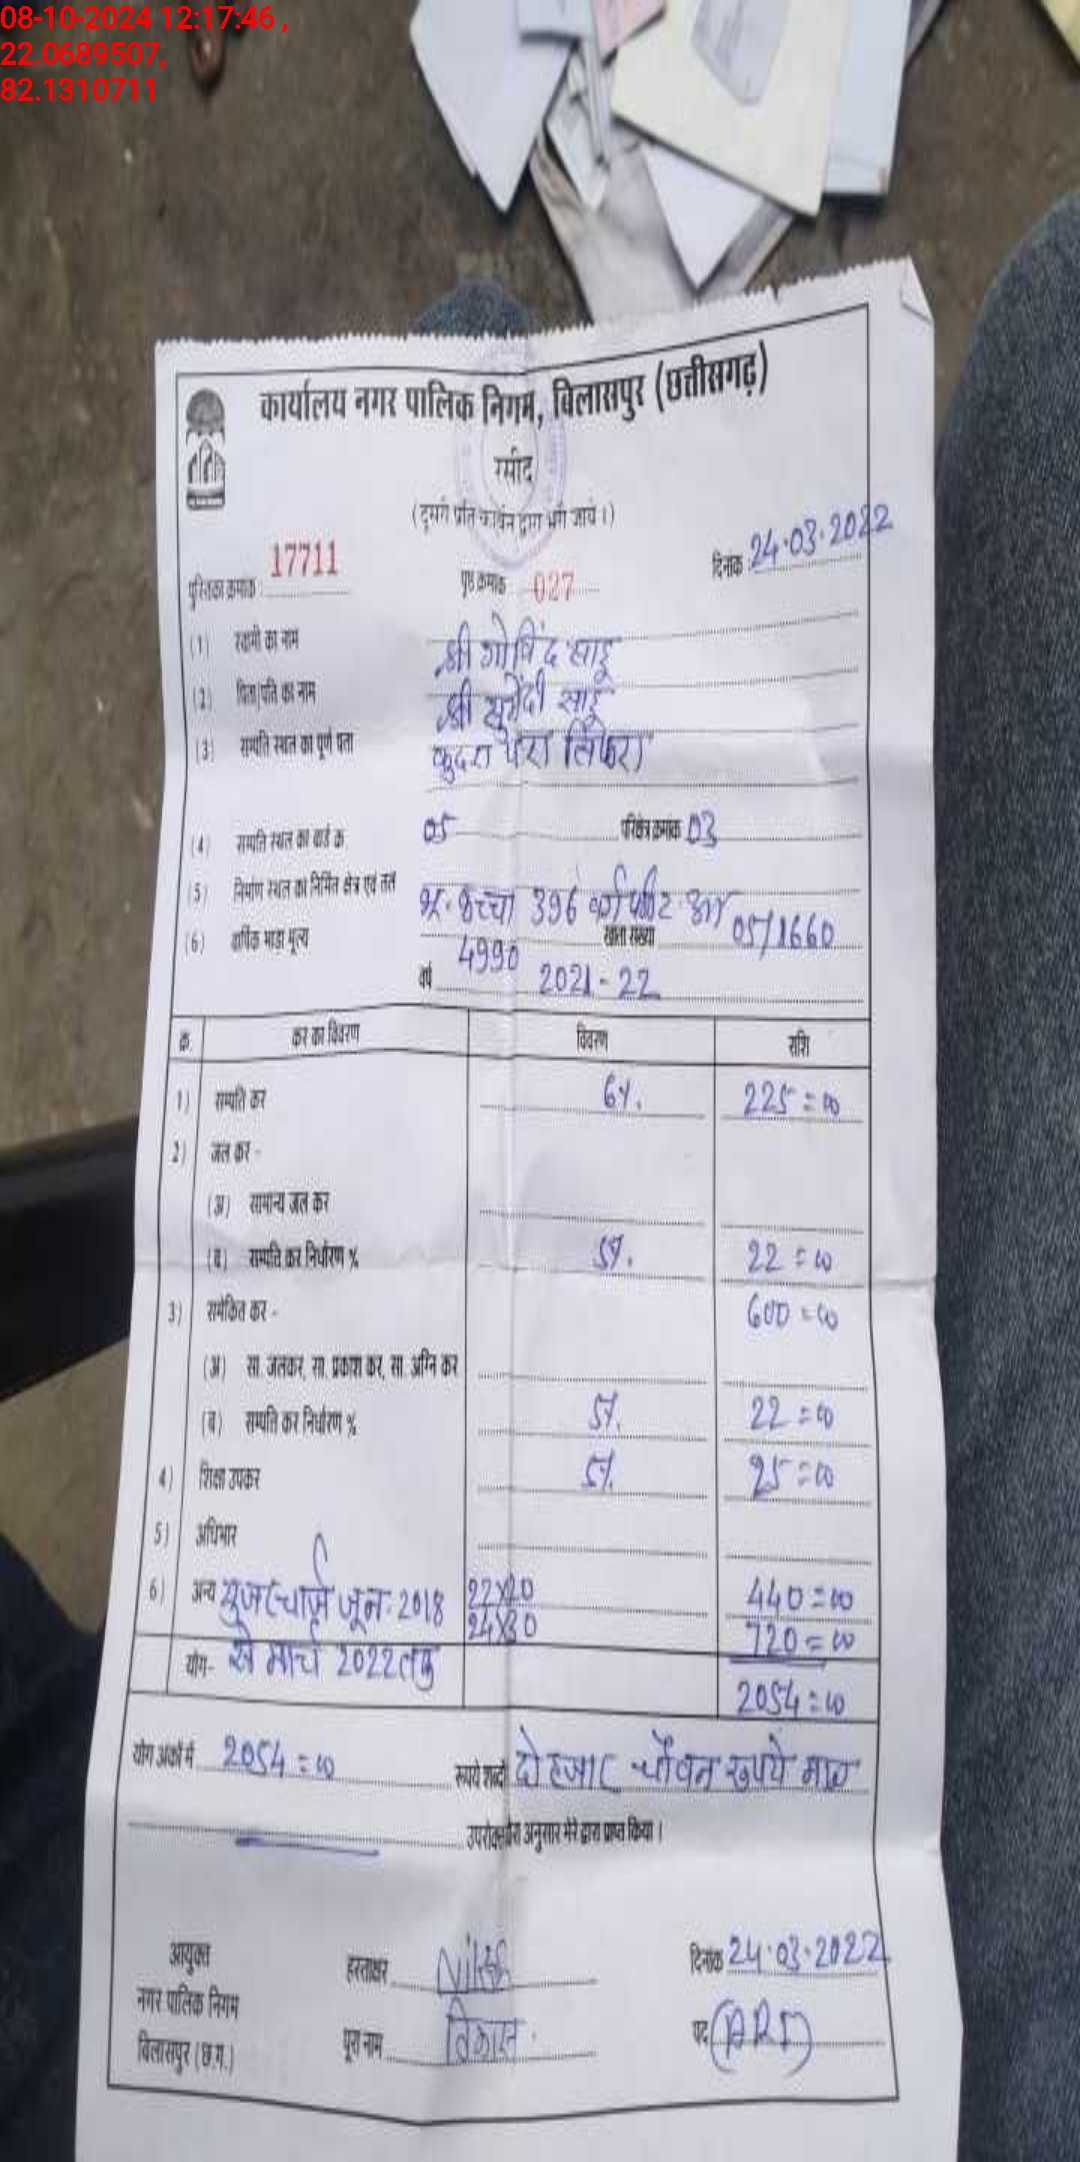 08-10-2024 12:17:46 ,
22.0689507,
82.1310711
कार्यालय नगर पालिक निगम, बिलासपुर (छत्तीसगढ़)
रसीद
(दूसरी प्रति कार्बन द्वारा भरी जावे।)
पुस्तिका क्रमांक : 17711 पृष्ठ क्रमांक 027 दिनांक 24.03.2022
(1) स्वामी का नाम श्री गोविंद साहू
(2) पिता/पति का नाम श्री साहू
(3) सम्पति स्थल का पूर्ण पता कुदरा पारा तिफरा
(4) सम्पति स्थल का वार्ड क्र. 05 परिक्षेत्र क्रमांक 03
(5) निर्माण स्थल का निर्मित क्षेत्र एवं तल 396 वर्ग फीट
(6) वार्षिक भाड़ा मूल्य 4990 खाता संख्या 05/1660
वर्ष 2021-22
क्र. कर का विवरण विवरण राशि
1) सम्पति कर 6%. 225=00
2) जल कर -
(अ) सामान्य जल कर
(ब) सम्पति कर निर्धारण % 5%. 22=00
3) समेकित कर - 600=00
(अ) सा. जलकर, सा. प्रकाश कर, सा. अग्नि कर
(ब) सम्पति कर निर्धारण % 5%. 22=00
4) शिक्षा उपकर 5%. 25=00
5) अधिभार
6) अन्य यूजर चार्ज जून. 2018 22X20 440=00
24X30 720=00
योग- से मार्च 2022 तक 2054=00
योग अंकों में 2054=00 रूपये शब्दों दो हजार चौवन रुपये मात्र
उपरोक्त ब्यौरा अनुसार मेरे द्वारा प्राप्त किया।
आयुक्त हस्ताक्षर दिनांक 24.03.2022
नगर पालिक निगम
बिलासपुर (छ.ग.) पूरा नाम विकास पद (ARI)